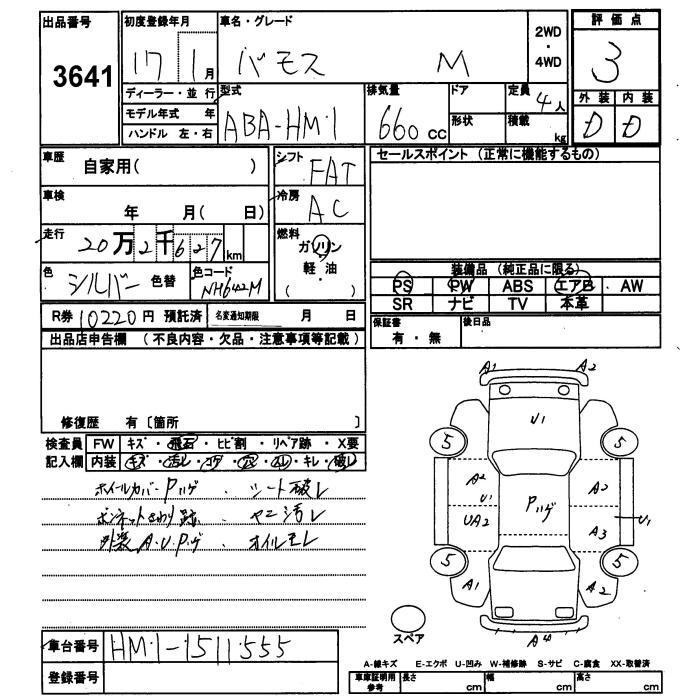 出品番号 3641
初度登録年月 17 1月
車名・グレード バモス M
2WD・4WD
評価点 3
外装 D 内装 D
ディーラー・並行
モデル年式 年
ハンドル 左・右
型式 ABA-HM1
排気量 660 cc
ドア
形状
定員 4人
積載 kg
車歴 自家用( )
シフト FAT
セールスポイント (正常に機能するもの)
車検 年 月( 日)
冷房 AC
走行 20万2千627km
燃料 ガソリン 軽・油 ( )
色 シルバー 色替
色コード NH642M
装備品 (純正品に限る)
PS PW ABS エアB AW
SR ナビ TV 本革
R券 10220円 預託済 名変通知期限 月 日
保証書 有・無
後日品
出品店申告欄 (不良内容・欠品・注意事項等記載)
修復歴 有〔箇所 〕
検査員 FW キズ・飛石・ヒビ割・リペア跡・X要
記入欄 内装 キズ・汚レ・コゲ・穴・ムレ・キレ・破レ
ホイールカバーPハゲ. シート破レ
ボンネットさわり跡. ヤニ汚レ
外装A.U.Pハゲ. オイルモレ
A1 A2
U1
5 5
A2 U1 Pハゲ A2
UA2 A3 U1
5 5
A1 A2
A4
スペア
車台番号 HM1-1511555
登録番号
A-線キズ E-エクボ U-凹み W-補修跡 S-サビ C-腐食 XX-取替済
車庫証明用参考 長さ cm 幅 cm 高さ cm